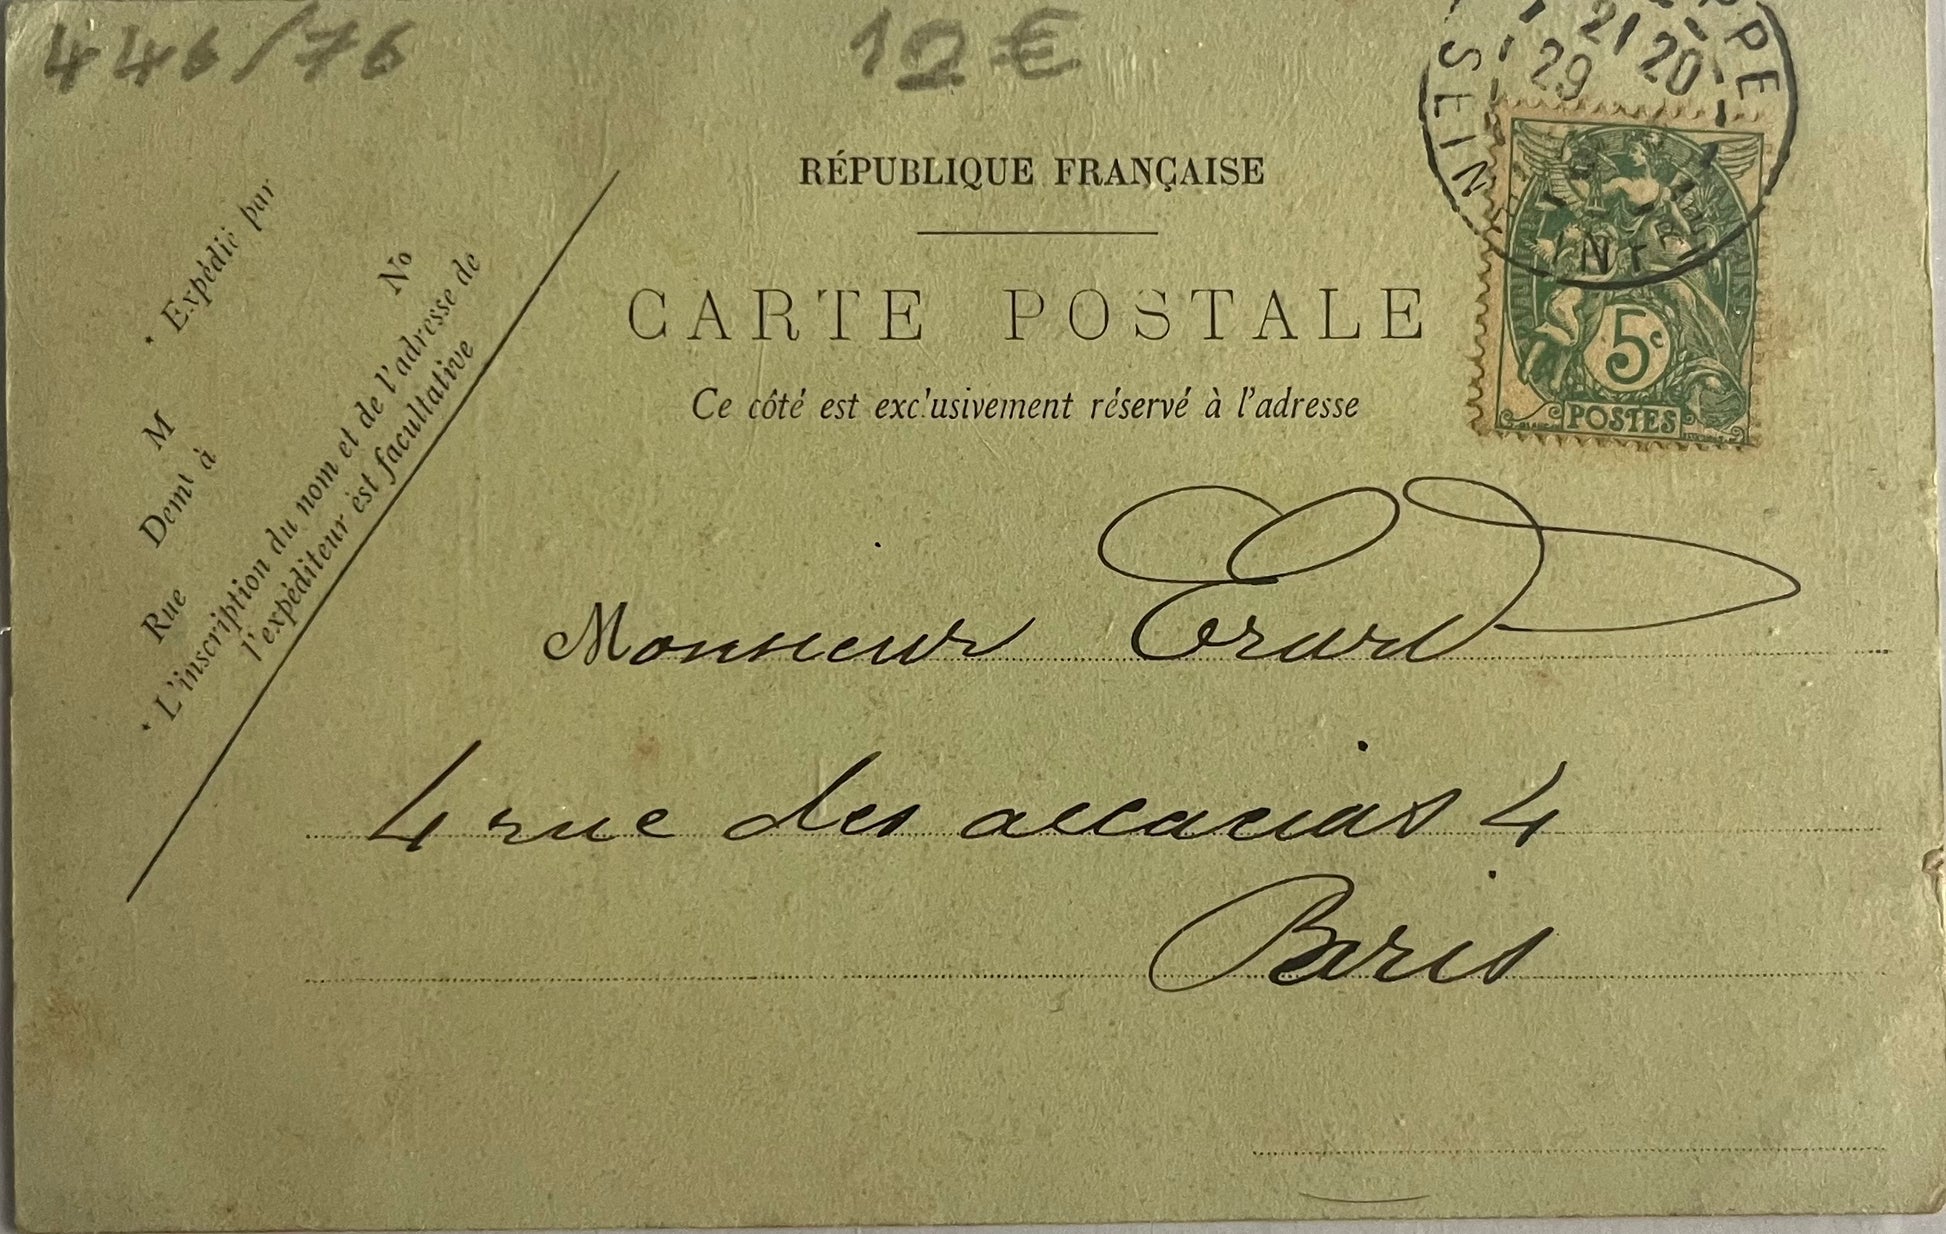 446/76
12 €
PPE
21 20
29
SEIN
INF
RÉPUBLIQUE FRANÇAISE
CARTE POSTALE
Ce côté est exclusivement réservé à l'adresse
5c
POSTES
* Expédié par
No
M
Demt à
Rue
* L'inscription du nom et de l'adresse de
l'expéditeur est facultative
Monsieur Erard
4 rue des accacias 4
Paris